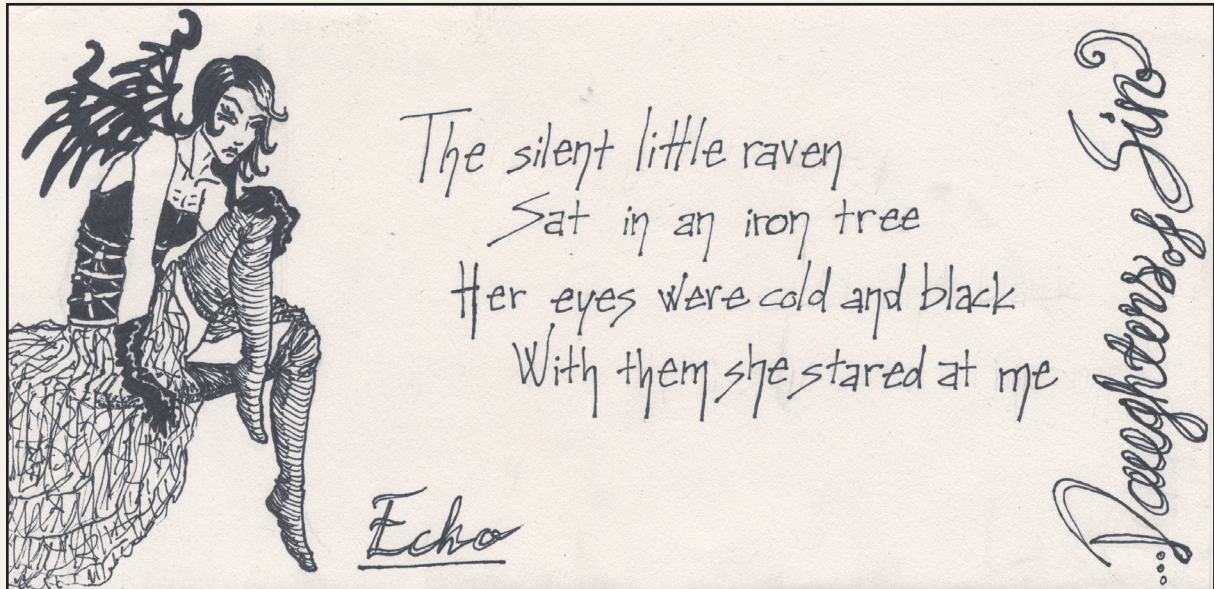 The silent little raven
Sat in an iron tree
Her eyes were cold and black
With them she stared at me
Echo
Daughters of Sin